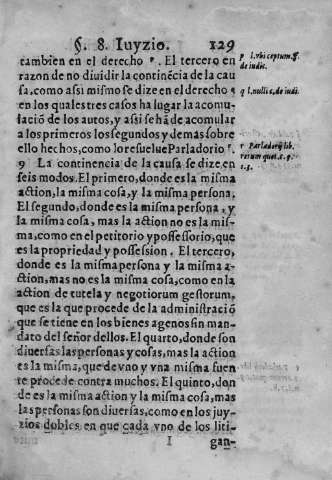 §. 8. Iuyzio. 129
tambien en el derecho ᵖ. El tercero en
razon de no diuidir la continẽcia de la cau
sa, como assi mismo se dize en el derecho q
en los quales tres casos ha lugar la acomu-
lació de los autos, y assi se hã de acomular
a los primeros los segundos y demàs sobre
ello hechos, como lo resuelue Parladorio ʳ.
9 La continencia de la causa se dize en
seis modos. El primero, donde es la misma
action, la misma cosa, y la misma persona.
El segundo, donde es la misma persona, y
la misma cosa, mas la action no es la mis-
ma, como en el petitorio y possessorio, que
es la propriedad y possession. El tercero,
donde es la misma persona y la misma a-
ction, mas no es la misma cosa, como en la
action de tutela y negotiorum gestorum,
que es la que procede de la administració
que se tiene en los bienes agenos sin man-
dato del señor dellos. El quarto, donde son
diuersas las personas y cosas, mas la action
es la misma, que de vno y vna misma fuen
te procede contra muchos. El quinto, don
de es la misma action y la misma cosa, mas
las personas son diuersas, como en los juy-
zios dobles en que cada vno de los liti-
I gan-
p l. vbi ceptum. ff.
de iudic.
q l. nulli c. de iudi.
r Parlador. lib.
rerum quot. c. 9.